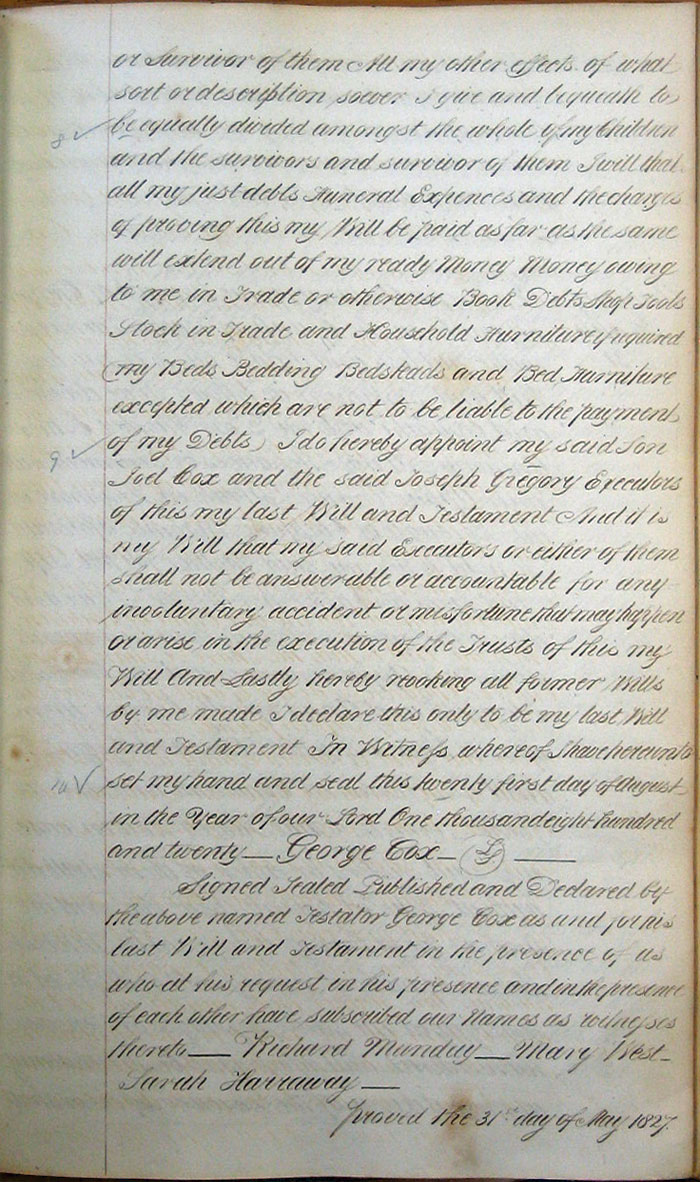 or Survivor of them All my other effects of what
sort or description soever I give and bequeath to
8 ✓ be equally divided amongst the whole of my Children
and the survivors and survivor of them I will that
all my just debts Funeral Expences and the charges
of proving this my Will be paid as far as the same
will extend out of my ready Money Money owing
to me in Trade or otherwise Book Debts Shop Tools
Stock in Trade and Household Furniture if required
(my Beds Bedding Bedsteads and Bed Furniture
excepted which are not to be liable to the payment
9 ✓ of my Debts) I do hereby appoint my said Son
Joel Cox and the said Joseph Gregory Executors
of this my last Will and Testament And it is
my Will that my said Executors or either of them
shall not be answerable or accountable for any
involuntary accident or misfortune that may happen
or arise in the execution of the Trusts of this my
Will And Lastly hereby revoking all former Wills
by me made I declare this only to be my last Will
and Testament In Witness whereof I have hereunto
10 ✓ set my hand and seal this twenty first day of August
in the Year of our Lord One thousand eight hundred
and twenty — George Cox — LS —
Signed Sealed Published and Declared by
the above named Testator George Cox as and for his
last Will and Testament in the presence of us
who at his request in his presence and in the presence
of each other have subscribed our Names as witnesses
thereto — Richard Munday — Mary West —
Sarah Harraway —
Proved the 31st day of May 1827.